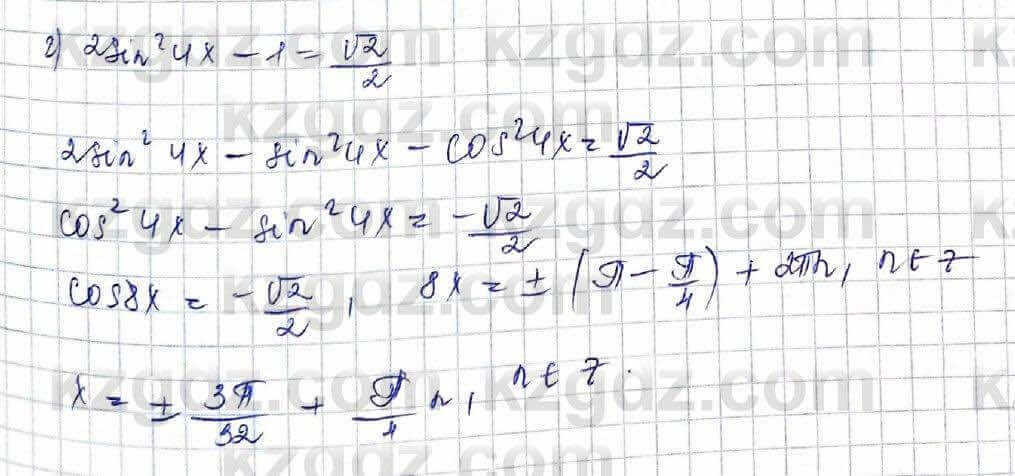 г) 2sin²4x − 1 = √2/2
2sin² 4x − sin²4x − cos²4x = √2/2
cos² 4x − sin²4x = −√2/2
cos8x = −√2/2, 8x = ± (π − π/4) + 2πn, n ∈ Z
x = ± 3π/32 + π/4 n, n ∈ Z.
kzgdz.com